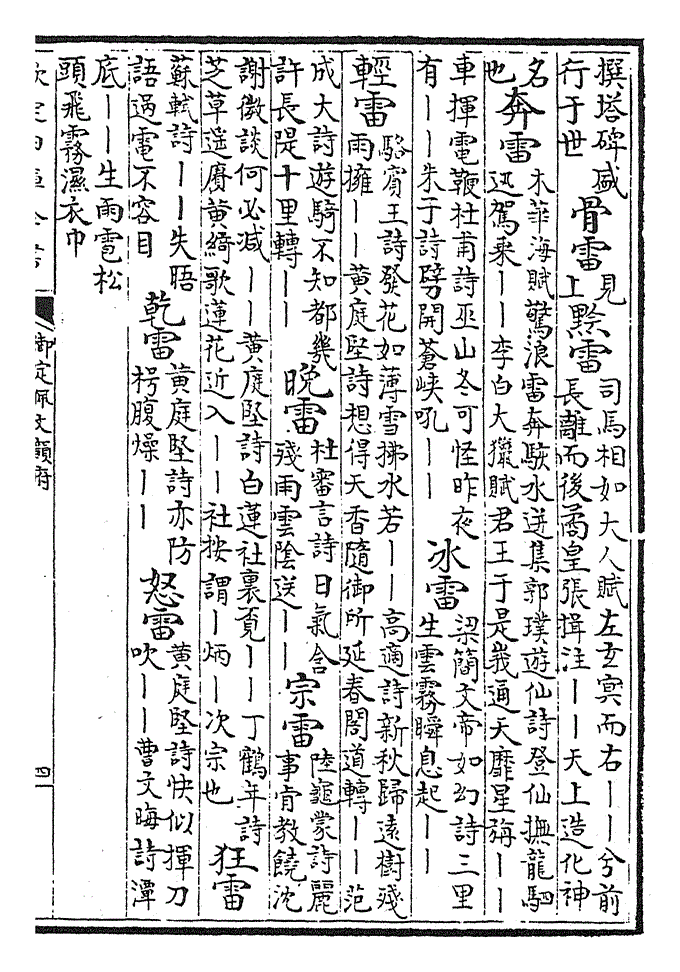 撰塔碑咸行于世 骨雷 見上 黔雷 司馬相如大人賦左玄冥而右——兮前長離而後矞皇張揖注——天上造化神
名也 奔雷 木華海賦驚浪雷奔駭水迸集郭璞遊仙詩登仙撫龍駟迅駕乘——李白大獵賦君王于是峩通天靡星旃——
車揮電鞭杜甫詩巫山冬可怪昨夜有——朱子詩劈開蒼峽吼—— 冰雷 梁簡文帝如幻詩三里生雲霧瞬息起——
輕雷 駱賓王詩發花如薄雪拂水若——高適詩新秋歸遠樹殘雨擁——黃庭堅詩想得天香隨御所延春閣道轉——范
成大詩遊騎不知都幾許長隄十里轉—— 晚雷 杜審言詩日氣含殘雨雲陰送—— 宗雷 陸龜蒙詩麗事肯教饒沈
謝微談何必減——黃庭堅詩白蓮社裏覔——丁鶴年詩芝草遥賡黃綺歌蓮花近入——社按謂—炳—次宗也 狂雷
蘇軾詩——失晤語過電不容目 乾雷 黃庭堅詩亦防枵腹燥—— 怒雷 黃庭堅詩快似揮刀吹——曹文晦詩潭
底——生雨雹松頭飛霧濕衣巾
欽定四庫全書 御定佩文韻府 四